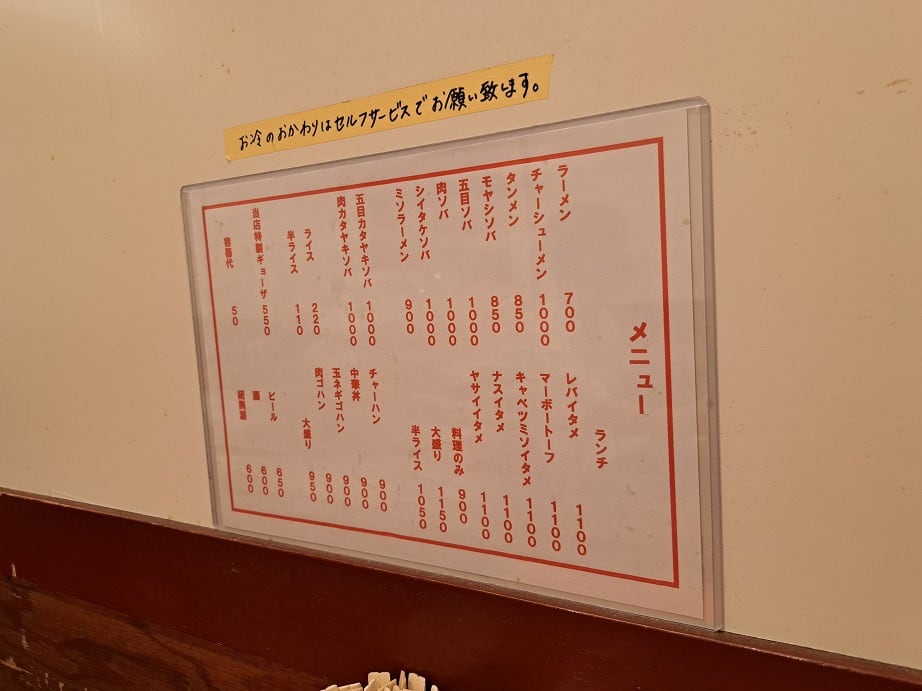 お冷のおかわりはセルフサービスでお願い致します。
メニュー
ラーメン 700
チャーシューメン 1000
タンメン 850
モヤシソバ 850
五目ソバ 1000
肉ソバ 1000
シイタケソバ 1000
ミソラーメン 900
五目カタヤキソバ 1000
肉カタヤキソバ 1000
ライス 220
半ライス 110
当店特製ギョーザ 550
容器代 50
ランチ
レバイタメ 1100
マーボートーフ 1100
キャベツミソイタメ 1100
ナスイタメ 1100
ヤサイイタメ 1100
料理のみ 900
大盛り 1150
半ライス 1050
チャーハン 900
中華丼 900
玉ネギゴハン 900
肉ゴハン 900
大盛り 950
ビール 650
酒 600
紹興酒 600